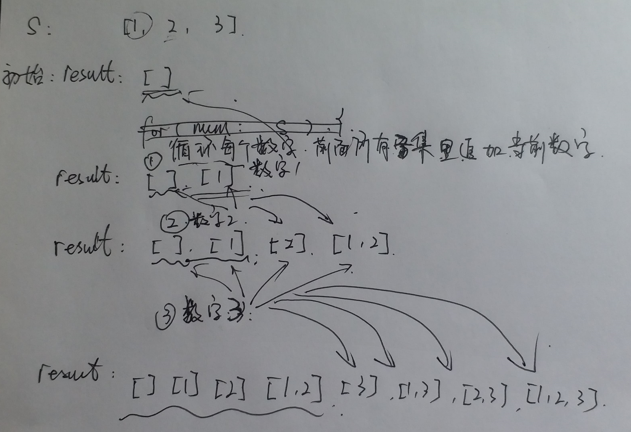 S: [1, 2, 3].
初始: result: []
for ( num : S ) {
循环每个数字, 前面所有子集里追加当前数字.
① 数字1
result: [], [1]
② 数字2
result: [], [1], [2], [1,2].
③ 数字3:
result: [] [1] [2] [1,2], [3], [1,3], [2,3], [1,2,3].